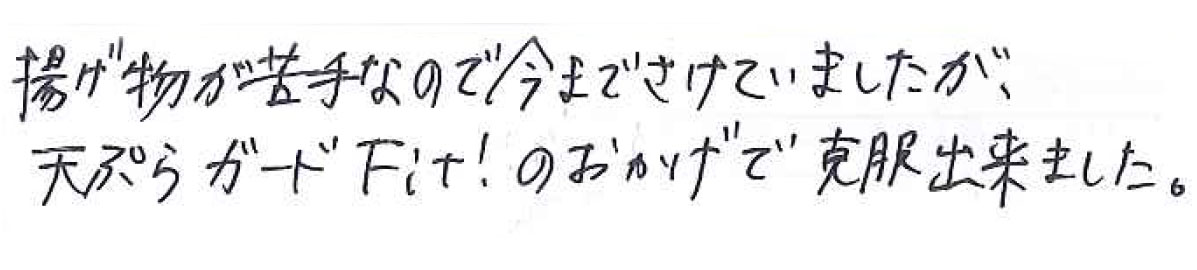 揚げ物が苦手なので今までさけていましたが、
天ぷらガードFit!のおかげで克服出来ました。